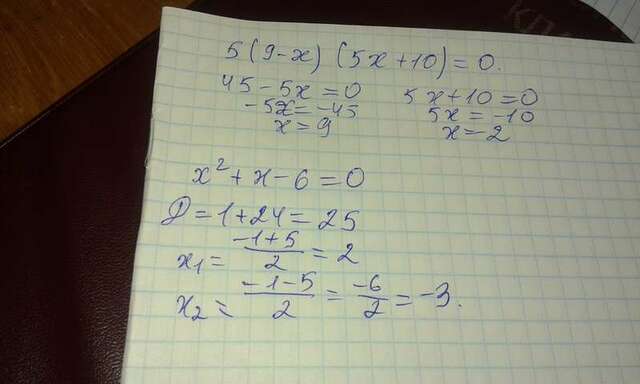 5(9-x)(5x+10)=0.
45-5x=0
-5x=-45
x=9
5x+10=0
5x=-10
x=-2
x²+x-6=0
D=1+24=25
x₁=\frac{-1+5}{2}=2
x₂=\frac{-1-5}{2}=\frac{-6}{2}=-3.